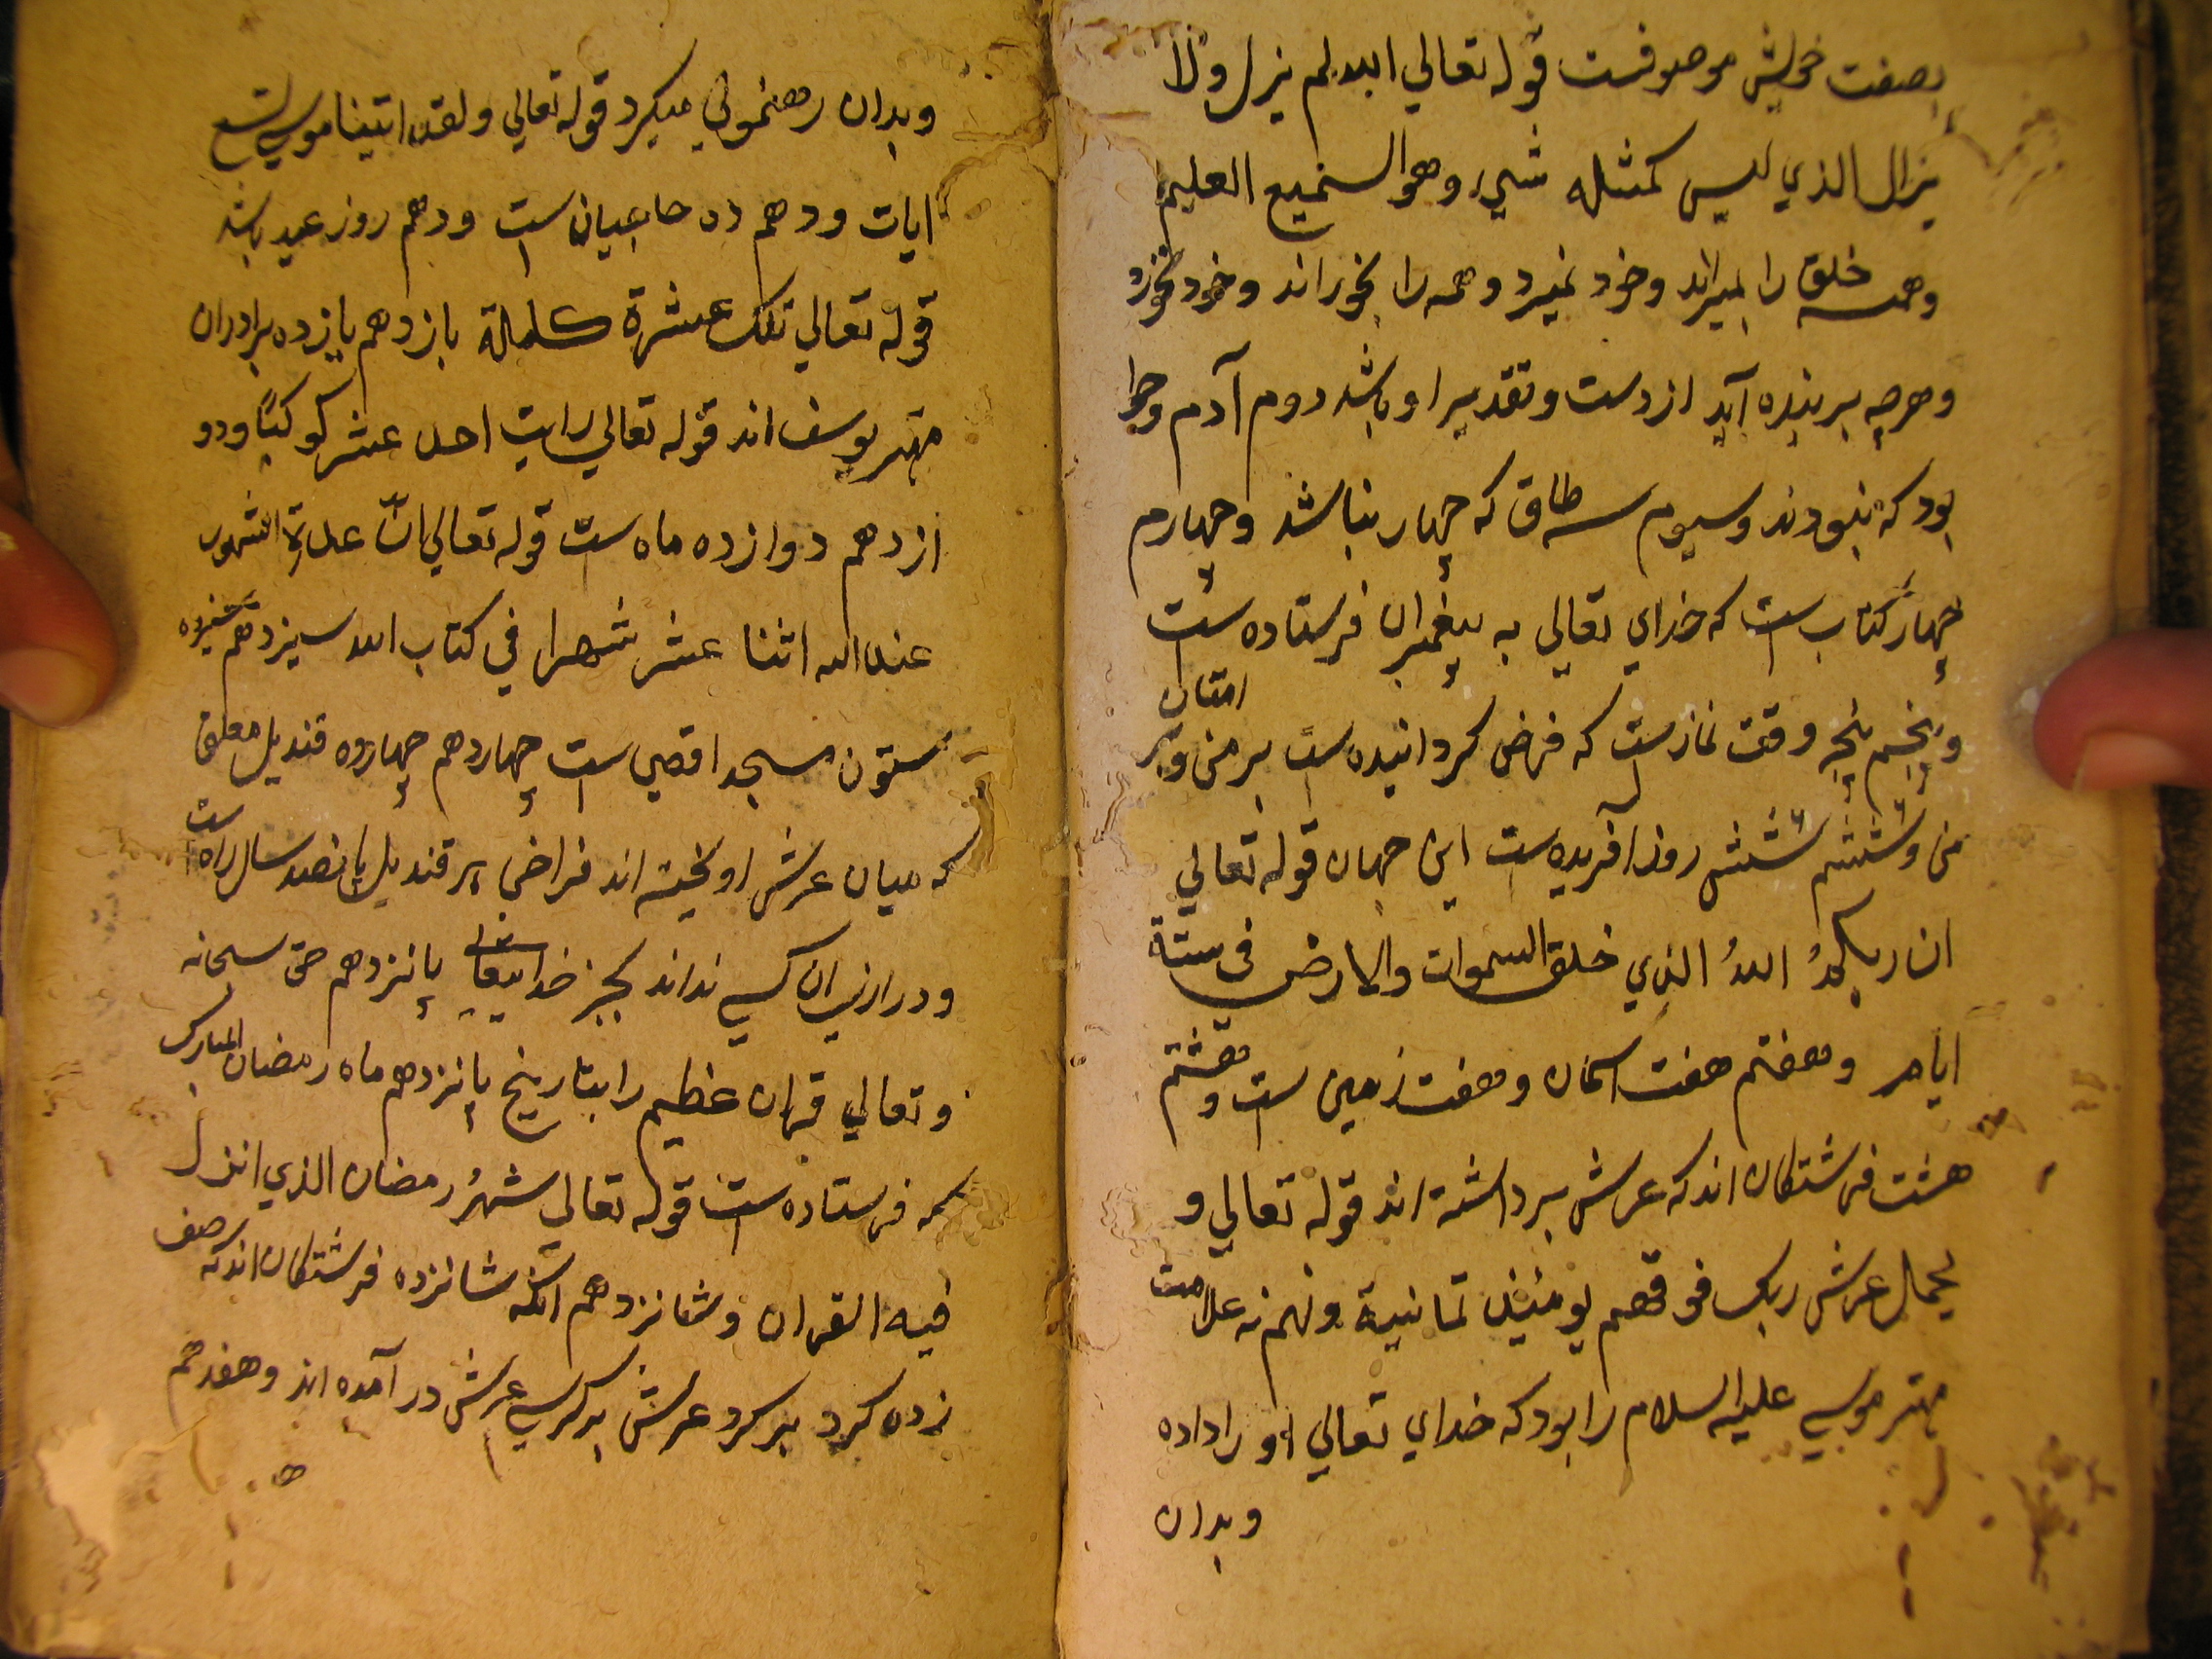 بصفت خویش موصوفست قوله تعالي الله لم یزل ولا
یزال الذي لیس کمثله شيء وهو السمیع العلیم
وهمه خلق را بمیراند وخود نمیرد وهمه را بخوراند وخود نخورد
وهرچه بر بنده آید از دست وتقدیر او باشد دوم آدم وحوا
بود که نبودند وسیوم سه طاق که چهار نباشد وچهارم
چهار کتاب ست که خداي تعالي به پیغمبران فرستاده ست
وپنجم پنج وقت نماز ست که فرض کردانیده ست بر من وبر امتان
من وششم شش روز آفریده ست این جهان قوله تعالي
ان ربکم اللهُ الذي خلق السموات والارض في ستة
ایام وهفتم هفت اسمان وهفت زمین ست وهشتم
هشت فرشتکان اند که عرش برداشته اند قوله تعالي و
یحمل عرش ربک فوقهم یومئذ ثمانیة ونهم نه علامت
مهتر موسي علیه السلام را بود که خداي تعالي او را داده
وبدان
وبدان رهنموني میکرد قوله تعالي ولقد اتینا موسي تسع
ایات ودهم ده حاجیان ست ودهم روز عید باشد
قوله تعالي تلک عشرة کاملة یازدهم یازده برادران
مهتر یوسف اند قوله تعالي رایت احد عشر کوکبًا ودو
ازدهم دوازده ماه ست قوله تعالي انّ عدة الشهور
عند الله اثنا عشر شهرا في کتاب الله سیزدهم سیزده
ستون مسجد اقصي ست چهاردهم چهارده قندیل معلق
که میان عرش اویخته اند فراخي هر قندیل پانصد سال راه ست
ودرازي ان کسي نداند بجز خدایتعالي پانزدهم حق سبحانه
وتعالي قران عظیم را بتاریخ پانزدهم ماه رمضان المبارک
که فرستاده ست قوله تعالي شهرُ رمضان الذي انزل
فیه القران وشانزدهم انکه شانزده فرشتکان اند که صف
زده کرد بر کرد عرش بر کرسي عرش در آمده اند وهفدهم